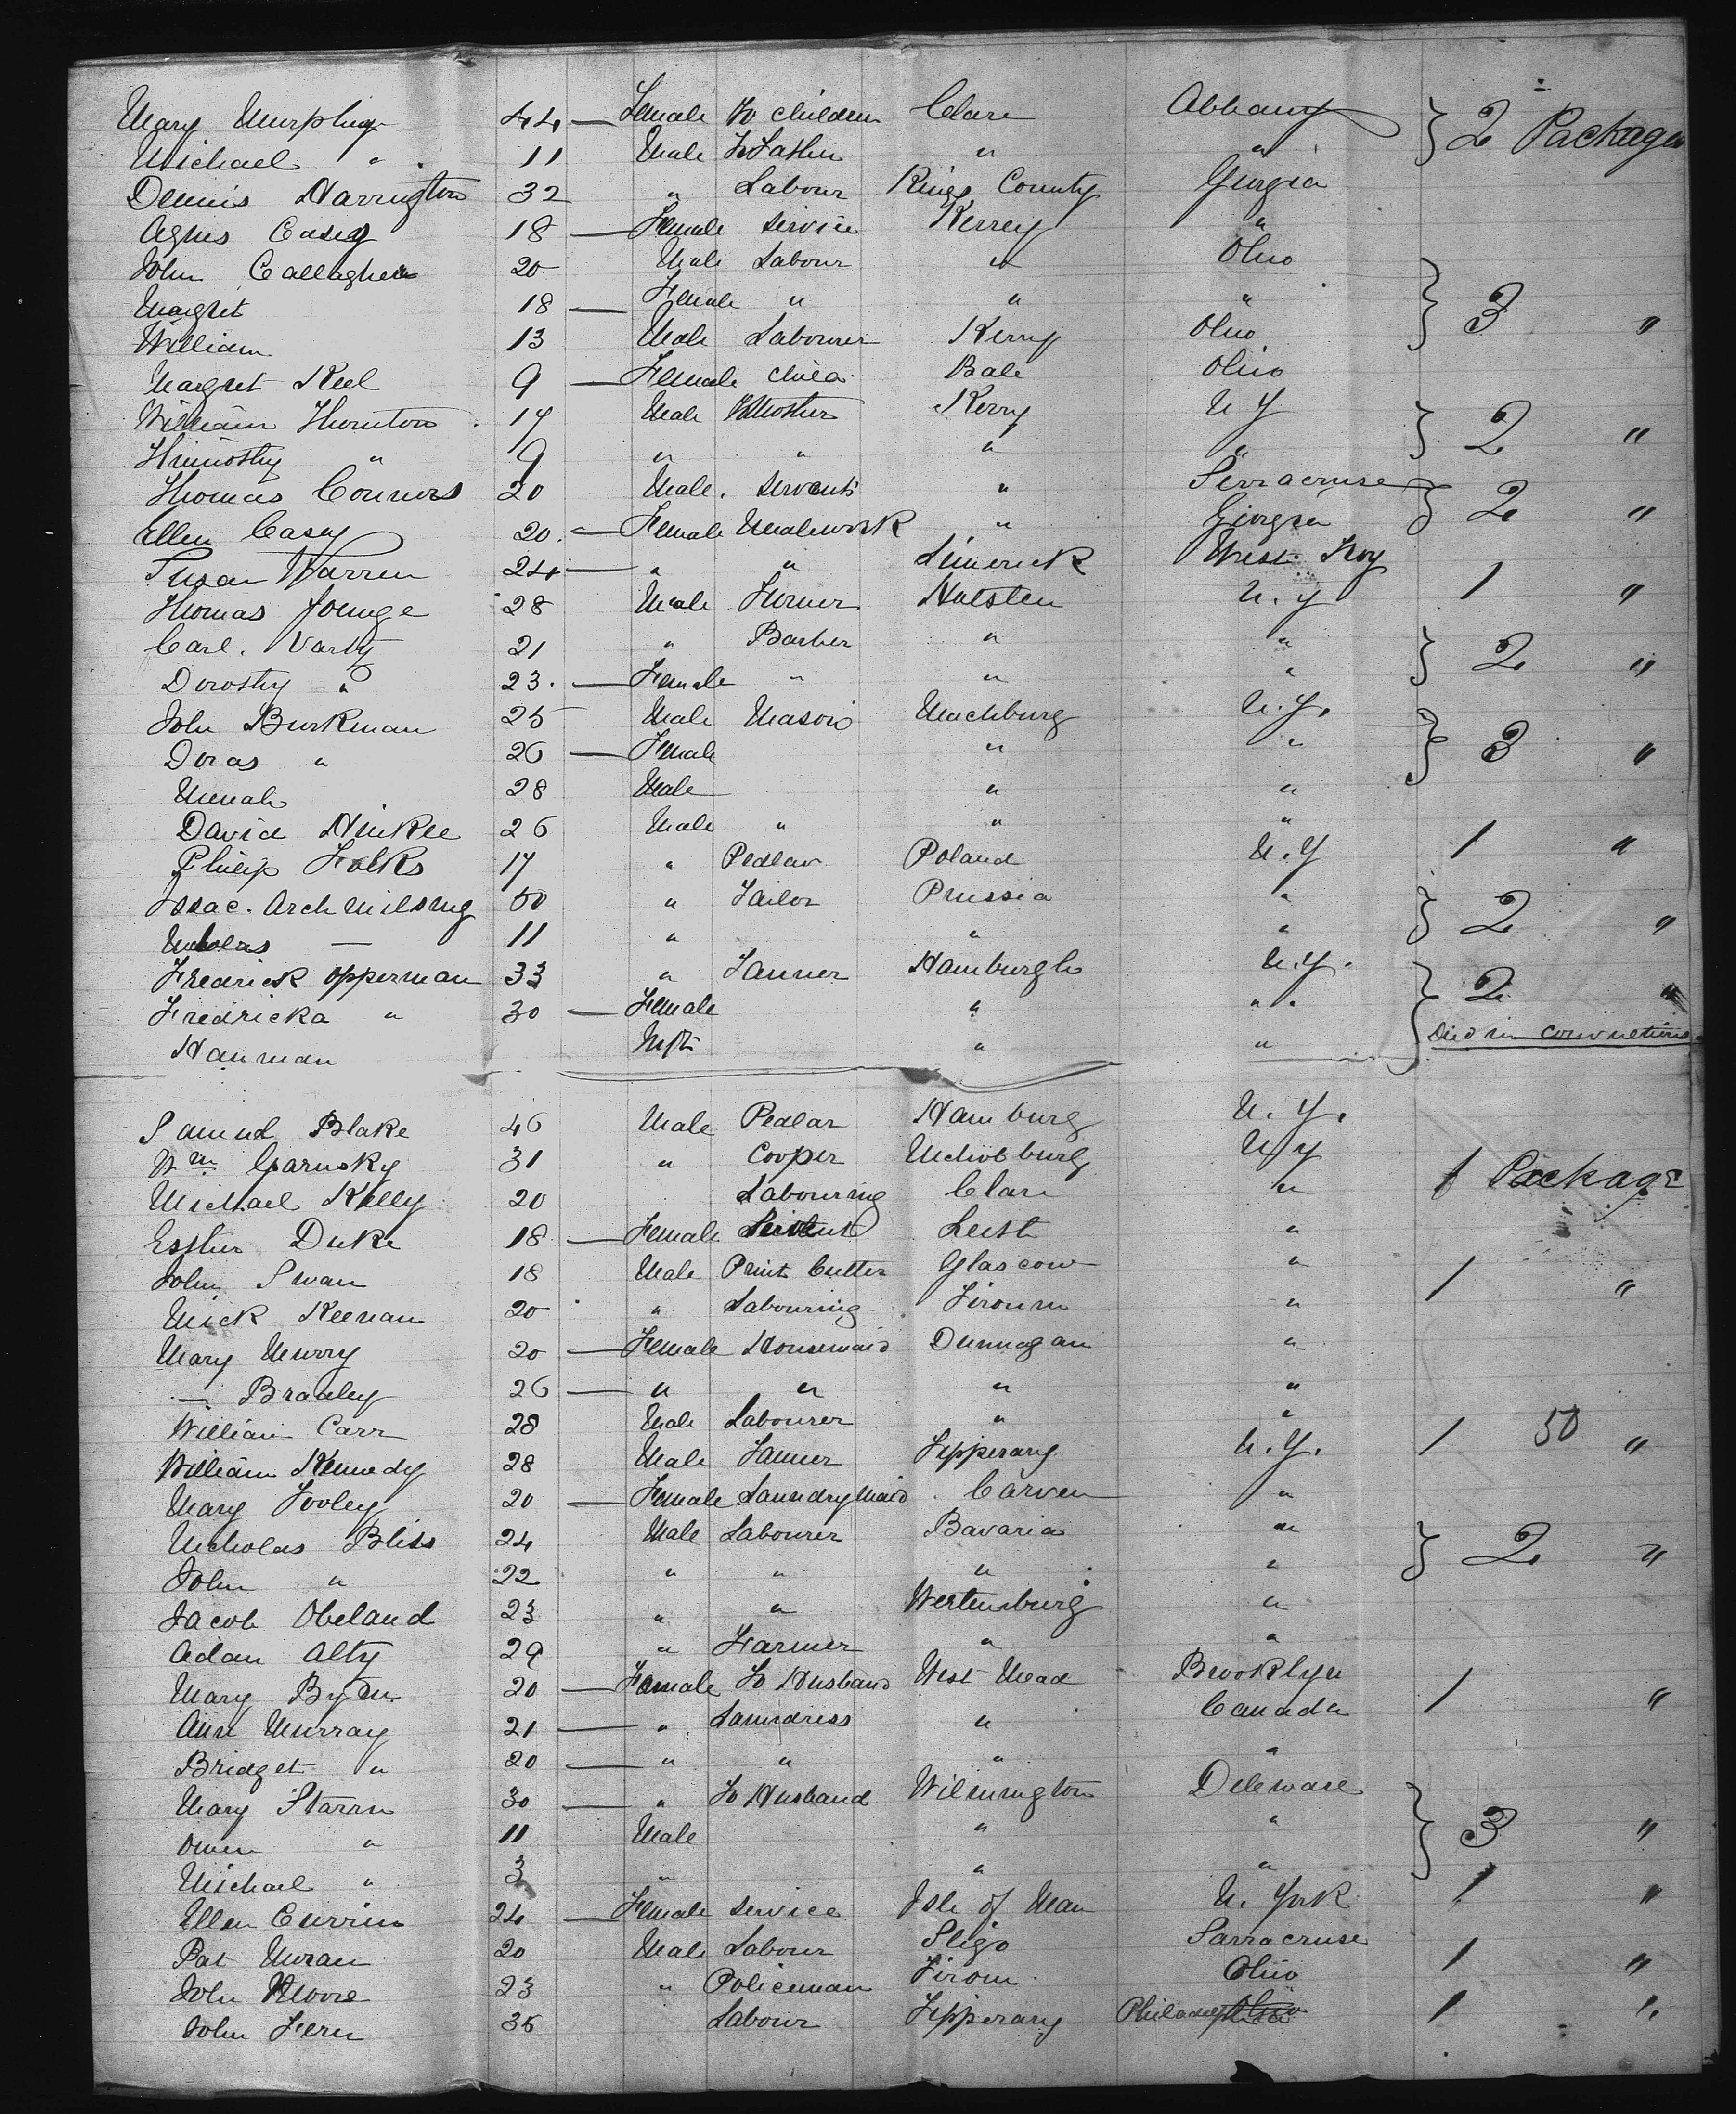 Mary Murphy 44 — Female To children Clare Albany } 2 Packages
Michael " 11 Male To Father " "
Dennis Harrington 32 " Labour Kings County Georgia
Agnes Casey 18 — Female Service Kerrey "
John Callaghen 20 Male Labour " Ohio
Magret 18 — Female " " " } 3 "
William 13 Male Labourer Kerry Ohio
Magret Keel 9 — Female Chila Bale Ohio
William Thornton 17 Male To Mother Kerry N Y } 2 "
Thimothy " 9 " " " "
Thomas Connors 20 Male. Servents " Serracruse } 2 "
Ellen Casey 20. — Female " Georgia
Susan Warren 24 — " " Limerick West Troy
Thomas Jounge 28 Male Turner Holsten N. Y 1 "
Carl. Varty 21 " Barber " " } 2 "
Dorothy " 23. — Female " " "
John Burkman 25 Male Mason Machburg N. Y. } 3 "
Doras " 26 — Female " "
28 Male " "
David Hinkle 26 Male " " "
Philip Folks 17 " Pedlar Poland N. Y 1 "
Isac. 50 " Tailor Prussia " } 2 "
Nicholas — 11 " " "
Fredrick Opperman 33 " Tanner Hamburgh N. Y. } 2 "
Fredricka " 30 — Female " " "
Hanman Inft " " Died in
Samuel Blake 46 Male Pedlar Hamburg N. Y.
Wm Garnsky 31 " Cooper N Y
Michael Kelly 20 Labouring Clare " 1 Package
Esther Duke 18 — Female Servent "
John Swan 18 Male Print Cutter Glascow " 1 "
Mick Keenan 20 " Labouring "
Mary Murry 20 — Female Housemaid Dunnogan "
— Bradley 26 — " " " "
William Carr 28 Male Labourer " "
William Kennedy 28 Male Tipperary N. Y. 1 50 "
Mary Tooley 20 — Female Laundry Maid Carven "
Nicholas Bliss 24 Male Labourer Bavaria " } 2 "
John " 22 " " " "
Jacob Obeland 23 " " Wertemburg "
Adam Alty 29 " Farmer " "
Mary Byrn 20 — Female To Husband West Mead Brooklyn 1 "
Ann Murray 21 — " Laundress " Canada
Bridget " 20 — " " " "
Mary Starrn 30 — " To Husband Wilmington Deleware } 3 "
Owen " 11 Male " "
Michael " 3 " " "
Ellen Currin 24 — Female Service Isle of Man N. York 1 "
Pat Muran 20 Male Labour Sligo Sarracruse 1 "
John Moore 23 " Policeman Tirom Ohio
John Fern 35 Labour Tipperary 1 "